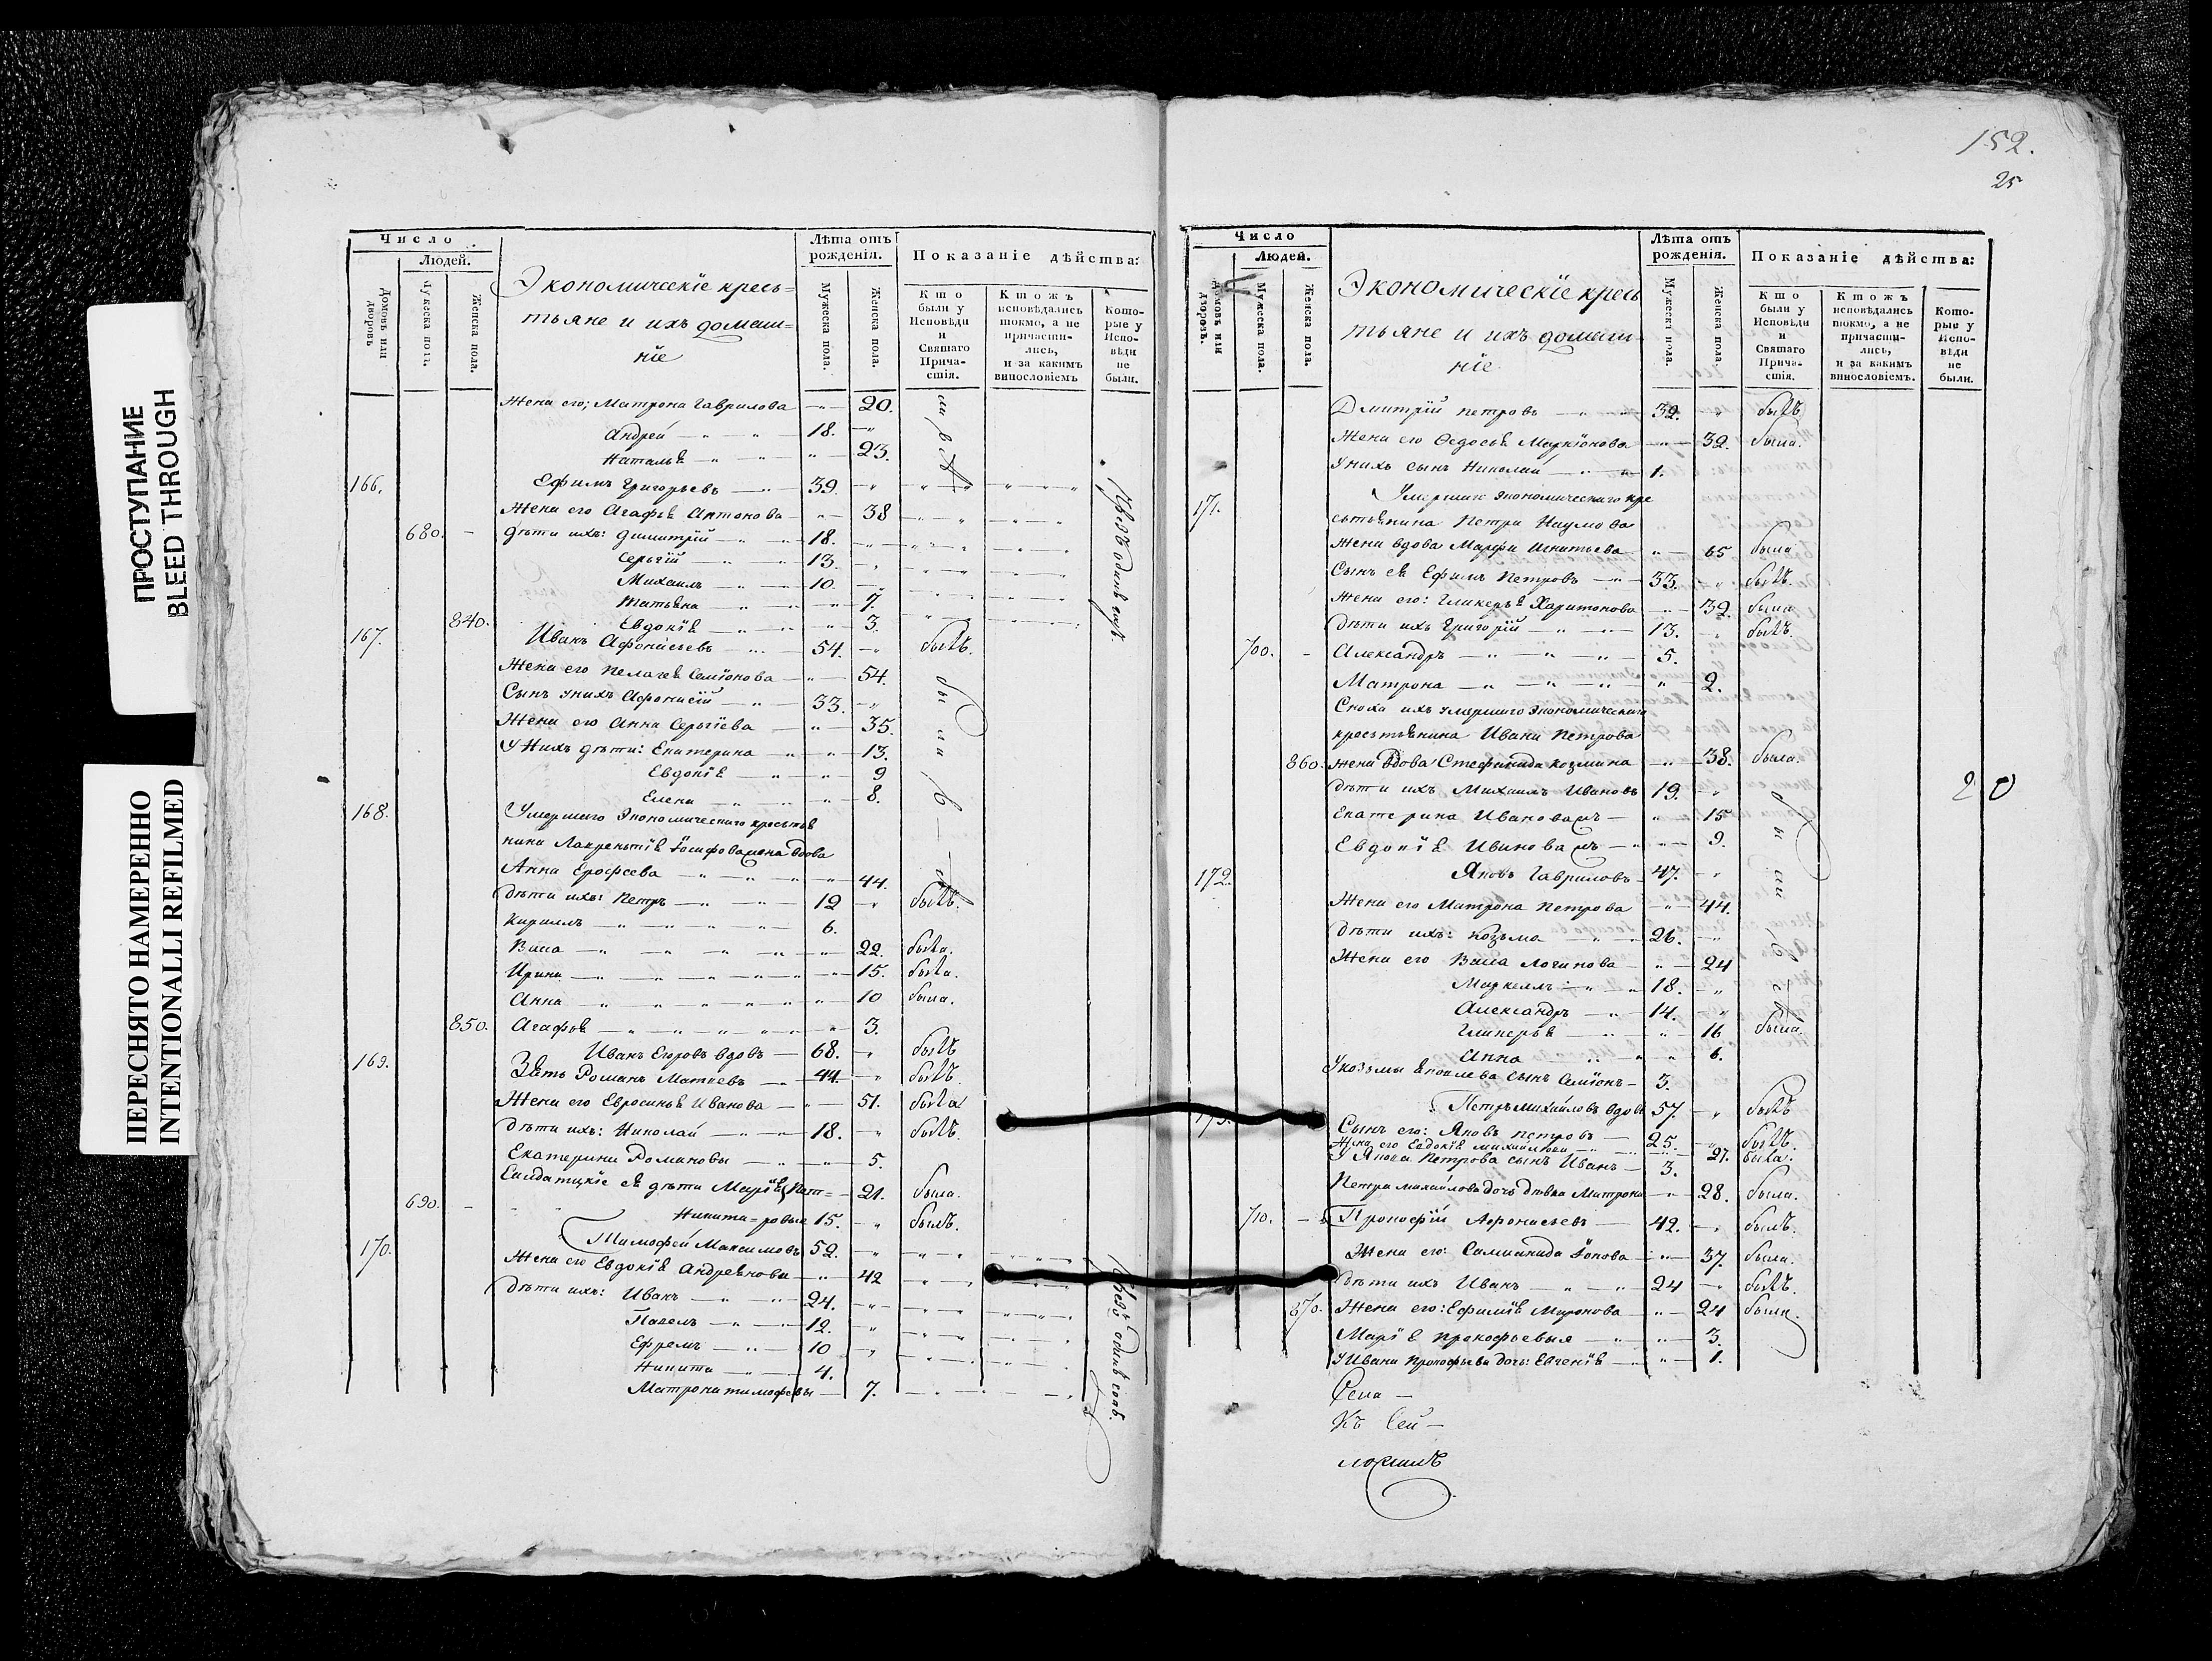 ПРОСТУПАНИЕ
BLEED THROUGH
ПЕРЕСНЯТО НАМЕРЕННО
INTENTIONALLI REFILMED
Число
Людей.
Домовъ или дворовъ
Мужеска пола.
Женска пола.
Экономическіе кресь=
тьяне и ихъ домаш=
ніе
Лѣта отъ рожденія.
Мужеска пола.
Женска пола.
Показаніе дѣйства:
Кто были у Исповѣди и Святаго Причастія.
Ктожъ исповѣдались токмо, а не причастились, и за какимъ винословіемъ
Которые у Исповѣди не были.
Жена его; Матрона Гаврилова 20.
Андрей 18.
Наталья 23.
166. Ефимъ Григорьевъ 39.
Жена его Агафья Антонова 38
680. Дѣти ихъ: Димитрій 18.
Сергій 13.
Михаилъ 10.
Татьяна 7.
840. Евдокія 3.
167. Иванъ Афонасьевъ 54. былъ.
Жена его Пелагея Семіонова 54.
Сынъ унихъ Афонасій 33.
Жена его Анна Сергіева 35.
Унихъ дѣти: Екатерина 13.
Евдокія 9
Елена 8.
168. Умершаго Экономическаго крестья
нина Лаврентія Іосифова жена вдова
Анна Ерофеева 44.
Дѣти ихъ: Петръ 12 былъ.
Кириллъ 6.
Васа 22. была.
Ирина 15. была.
Анна 10 была.
850. Агафья 3.
169. Иванъ Егоровъ вдовъ 68. былъ
Зять Романъ Матвевъ 44. былъ.
Жена его Евросинья Иванова 51. была
Дѣти ихъ: Николай 18. былъ.
Екатерина Романовы 5.
Салдатцкіе ея дѣти Марія Пет= 21. была.
690. Никита=ровые 15. былъ.
170. Тимофей Максимовъ 52.
Жена его Евдокія Андреянова 42
Дѣти ихъ: Иванъ 24.
Павелъ 12.
Ефремъ 10
Никита 4.
Матрона тимофевы 7.
152.
25
Число
Людей.
Домовъ или дворовъ.
Мужеска пола.
Женска пола.
Экономическіе кресь
тьяне и ихъ домаш-
ніе
Лѣта отъ рожденія.
Мужеска пола.
Женска пола.
Показаніе дѣйства:
Кто были у Исповѣди и Святаго Причастія.
Ктожъ исповѣдались токмо, а не причастились, и за какимъ винословіемъ.
Которые у Исповѣди не были.
Дмитрій петровъ 32. былъ
Жена его Ѳедосья Маркіонова 32. была.
Унихъ сынъ Николай 1.
171. Умершаго экономическаго кре
стьянина Петра Наумова
Жена вдова Марфа Игнатьева 65 была
Сынъ ея Ефимъ Петровъ 33. былъ.
Жена его: Гликерья Харитонова 32. была
Дѣти ихъ Григорій 13. былъ.
700. Александръ 5.
Матрона 2.
Сноха ихъ умершаго экономическаго
крестьянина Ивана Петрова
860. жена вдова Стефанида козмина 38. была.
Дѣти ихъ Михаилъ Ивановъ 19.
Екатерина Ивановамъ 15
Евдокія Ивановамъ 9.
20
172. Яковъ Гавриловъ 47.
Жена его Матрона Петрова 44.
Дѣти ихъ: козьма 26.
Жена его Васа логинова 24
Маркеллъ 18.
Александръ 14.
Гликерья 16 была.
Анна 6.
Укозьмы яковлева сынъ Семіонъ 3.
173. Петръ михайловъ вдовъ 57. былъ
Сынъ его: Яковъ петровъ 25. былъ.
Жена его Евдокія михайлова 27. была.
У Якова Петрова сынъ Иванъ 3.
Петра михайлова дочь дѣвка Матрона 28. была.
710. Прокофій Афонасьевъ 42. былъ.
Жена его: Саломанида Іонова 37. была.
Дѣти ихъ Иванъ 24 былъ.
870. Жена его: Ефимія Миронова 24 была.
Марія прокофьевыя 3.
У Ивана прокофьева дочь: Евгенія 1.